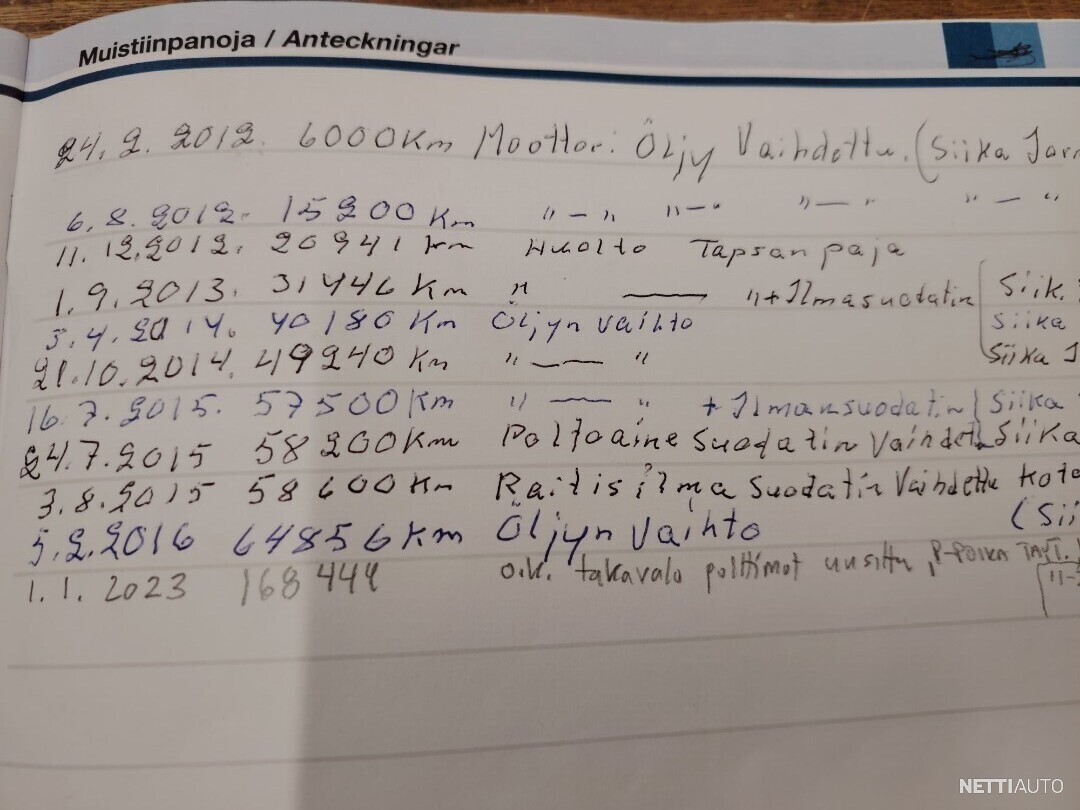 Muistiinpanoja / Anteckningar
24.2.2012. 6000 Km Moottori Öljy Vaihdettu. (Siika Jarm
6.8.2012. 15200 Km " — " " — " " — " " — "
11.12.2012. 20941 km Huolto Tapsan paja
1.9.2013. 31446 Km " —— " + Ilmasuodatin (Siik.
5.4.2014. 40180 Km Öljyn vaihto Siika
21.10.2014. 49240 Km " —— " Siika J
16.7.2015. 57500 Km " —— " + Ilmansuodatin (Siika
24.7.2015 58200 Km Poltoaine Suodatin Vaihdettu Siika
3.8.2015 58600 Km Raitis ilma Suodatin Vaihdettu
5.2.2016 64856 Km Öljyn Vaihto (Sii
1.1.2023 168444 o.k. takavalo polttimot uusittu,
NETTIAUTO